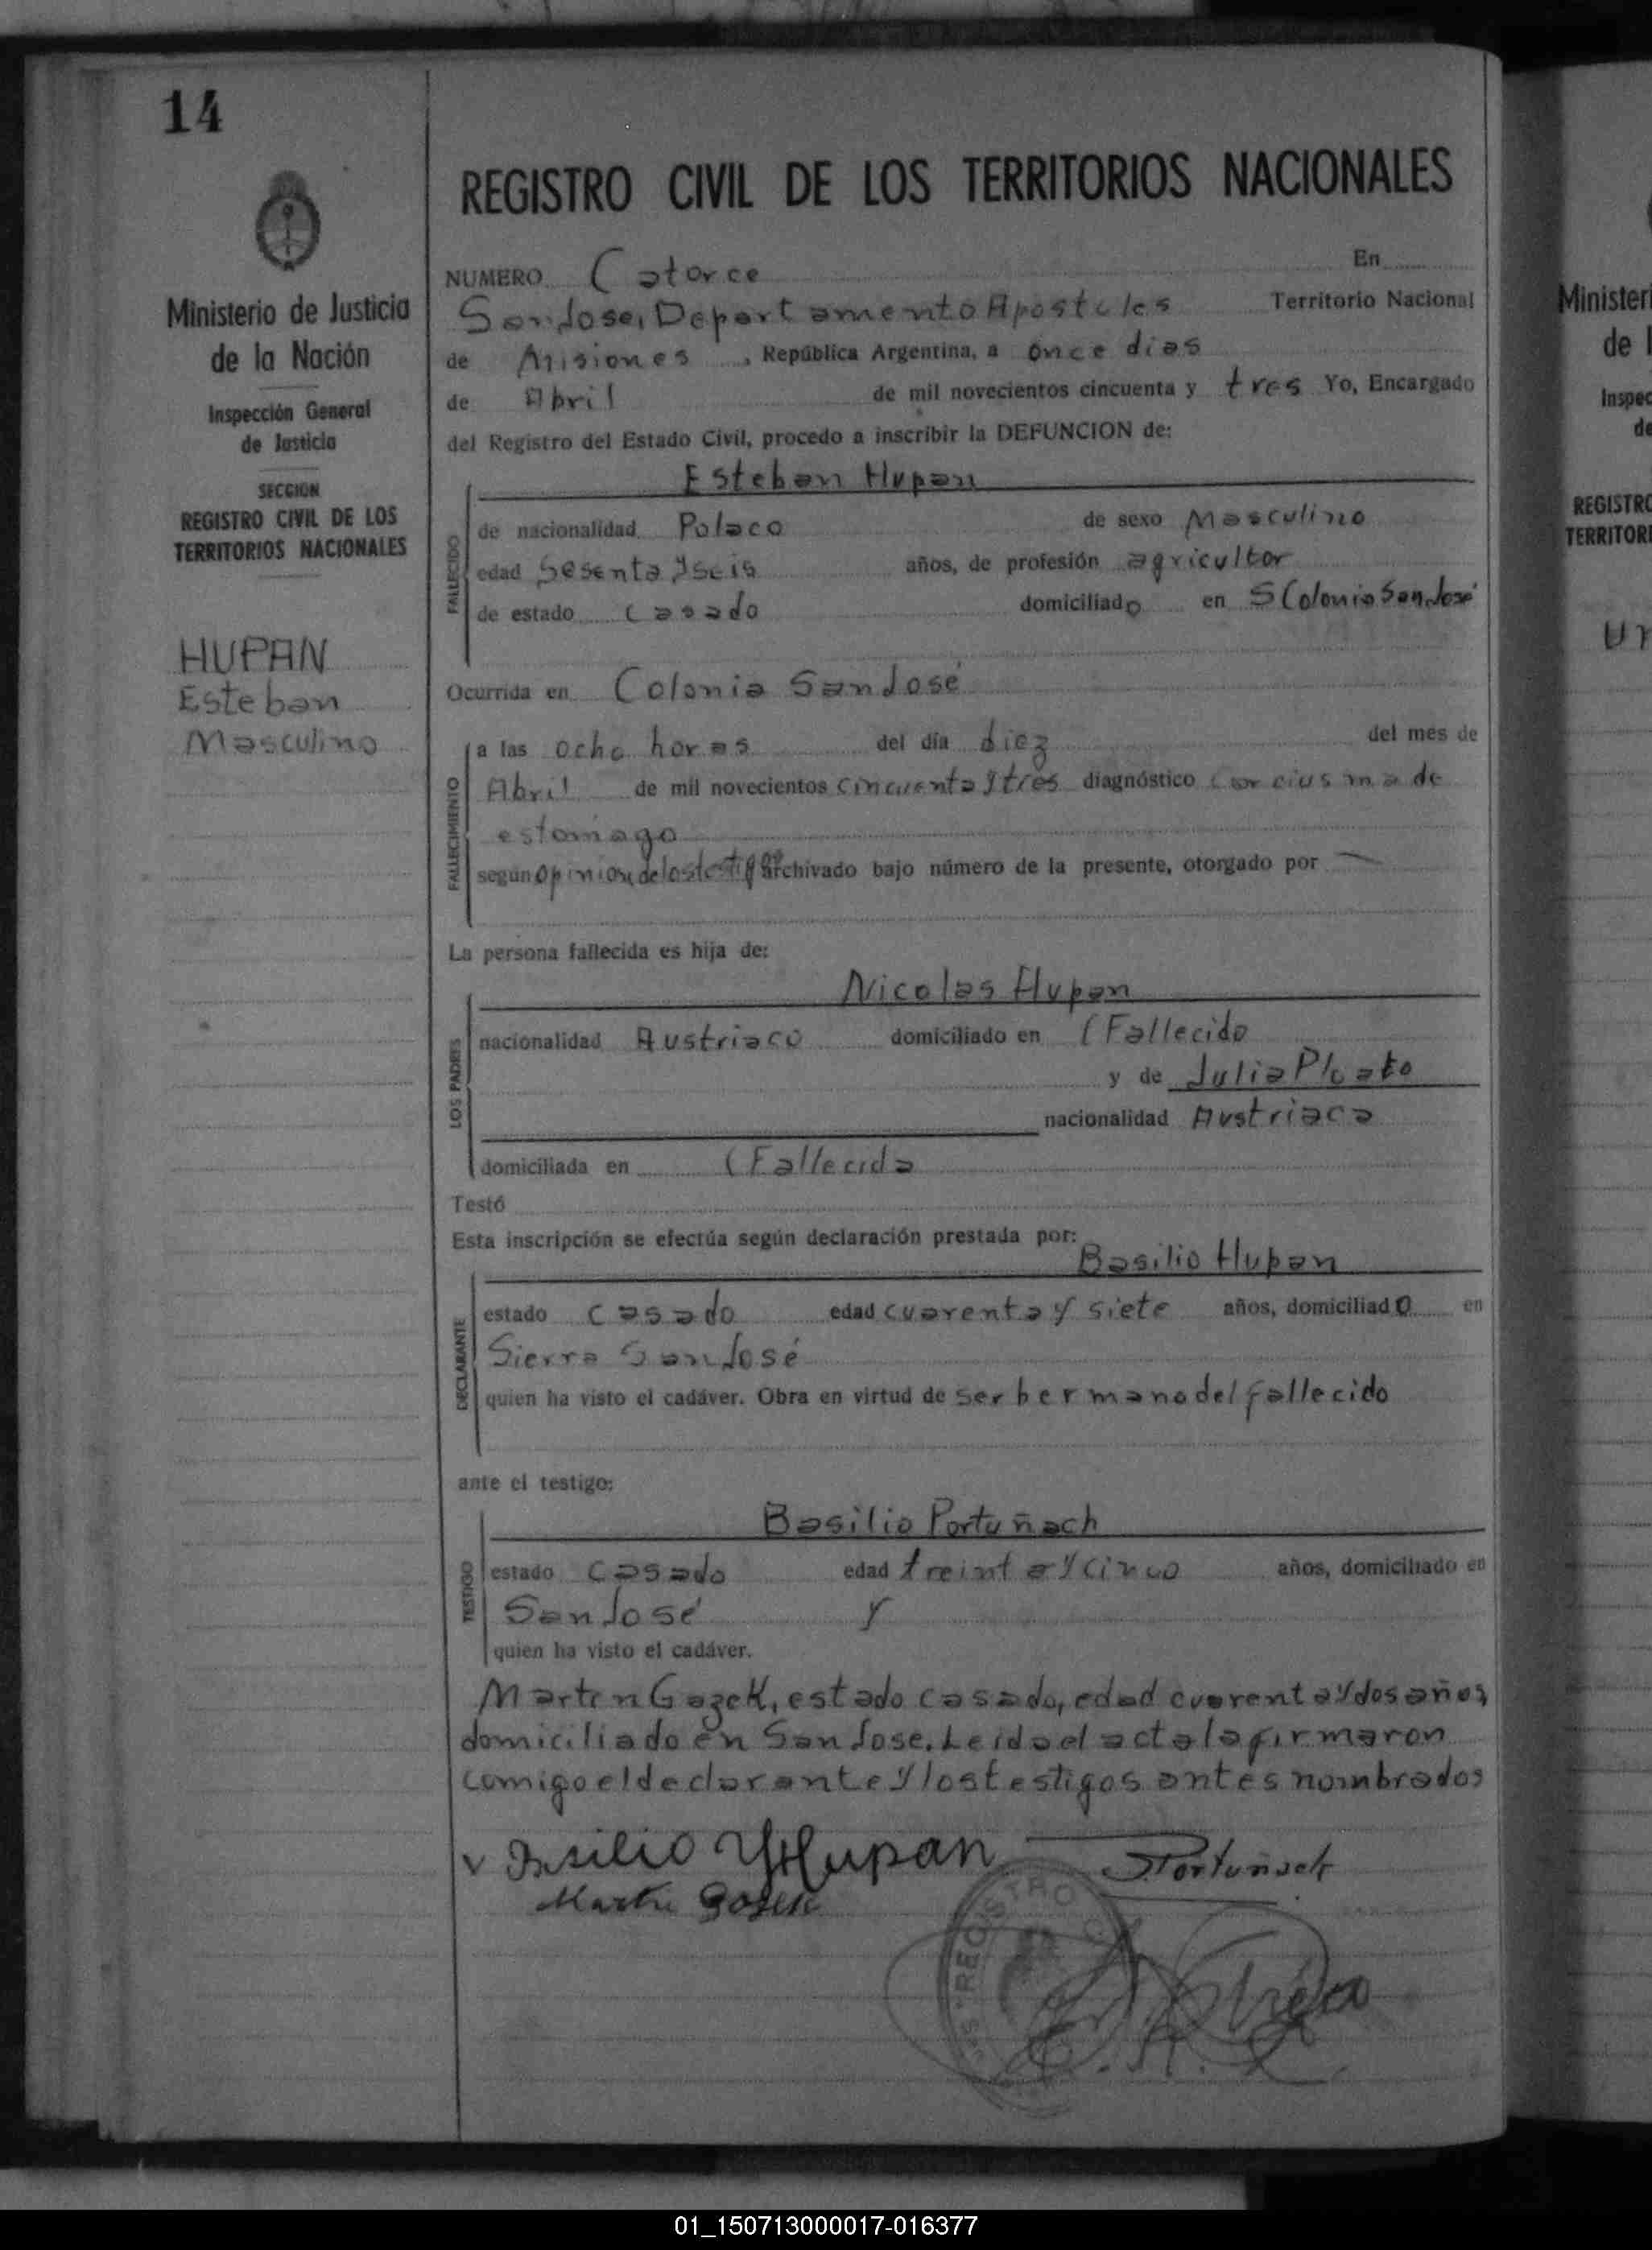 14
REGISTRO CIVIL DE LOS TERRITORIOS NACIONALES
Ministerio de Justicia
de la Nación
Inspección General
de Justicia
SECCION
REGISTRO CIVIL DE LOS
TERRITORIOS NACIONALES
HUPAN
Esteban
Masculino
NUMERO Catorce En
San Jose, Departamento Apostoles Territorio Nacional
de Misiones, República Argentina, a once dias
de Abril de mil novecientos cincuenta y tres Yo, Encargado
del Registro del Estado Civil, procedo a inscribir la DEFUNCION de:
Esteban Hupan
FALLECIDO
de nacionalidad Polaco de sexo Masculino
edad Sesenta y seis años, de profesión agricultor
de estado casado domiciliado en S Colonia San José
Ocurrida en Colonia San José
FALLECIMIENTO
a las ocho horas del día diez del mes de
Abril de mil novecientos cincuenta y tres diagnóstico de
estomago
según opinion de los testigos archivado bajo número de la presente, otorgado por
La persona fallecida es hija de:
Nicolas Hupan
LOS PADRES
nacionalidad Austriaco domiciliado en (Fallecido
y de Julia
nacionalidad Austriaca
domiciliada en (Fallecida
Testó
Esta inscripción se efectúa según declaración prestada por:
Basilio Hupan
DECLARANTE
estado casado edad cuarenta y siete años, domiciliado en
Sierra San José
quien ha visto el cadáver. Obra en virtud de ser hermano del fallecido
ante el testigo:
Basilio Portuñach
TESTIGO
estado casado edad treinta y cinco años, domiciliado en
San José y
quien ha visto el cadáver.
Martin Gazek, estado casado, edad cuarenta y dos años,
domiciliado en San Jose. Leida el acta la firmaron
comigo el declarante y los testigos antes nombrados
Hupan Portuñach
REGISTRO
Minister
de l
Inspec
de
REGISTRO
TERRITORI
01_150713000017-016377